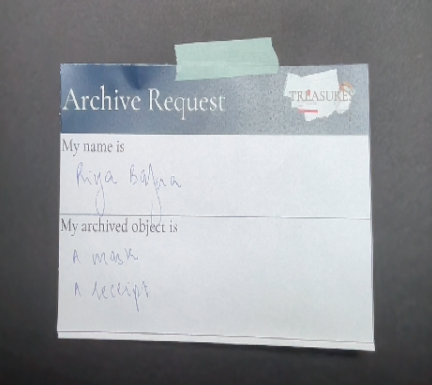 Archive Request
TREASURES
My name is
Riya
My archived object is
A mask
A receipt